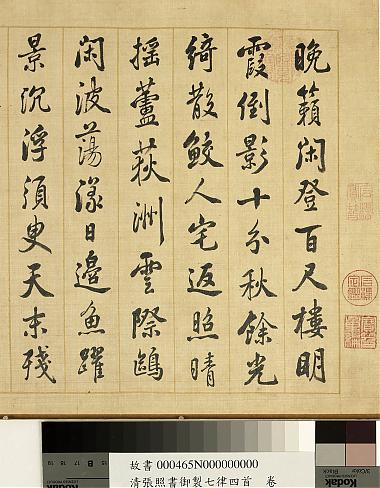 晚籟閑登百尺樓明
霞倒影十分秋餘光
綺散鮫人宅返照晴
搖蘆荻洲雲際鷗
閑波蕩漾日邊魚躍
景沉浮須臾天末殘
故書 000465N000000000
清張照書御製七律四首 卷
Kodak
Kodak